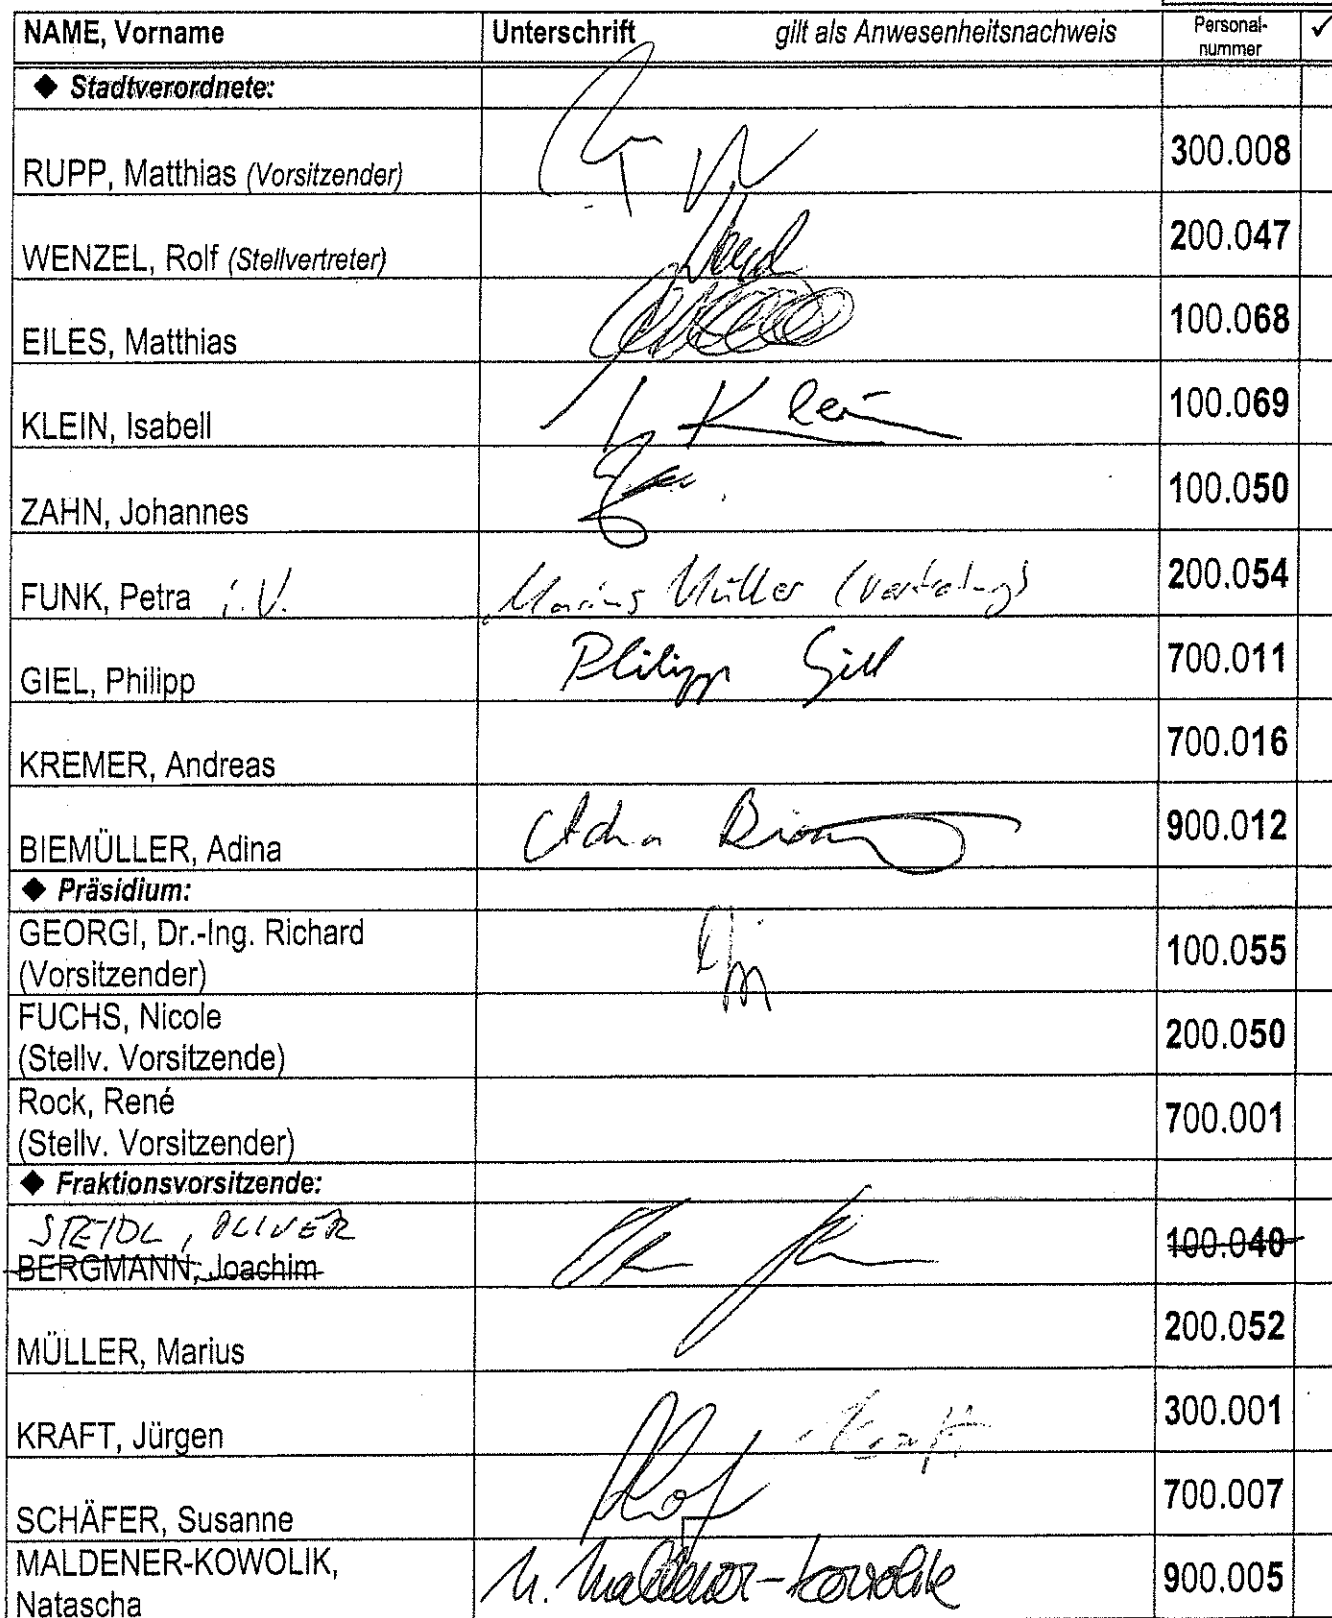 NAME, Vorname Unterschrift gilt als Anwesenheitsnachweis Personal-nummer ✓
◆ Stadtverordnete:
RUPP, Matthias (Vorsitzender) 300.008
WENZEL, Rolf (Stellvertreter) 200.047
EILES, Matthias 100.068
KLEIN, Isabell Klein 100.069
ZAHN, Johannes 100.050
FUNK, Petra i.V. Marius Müller (Vertretung) 200.054
GIEL, Philipp Philipp Giel 700.011
KREMER, Andreas 700.016
BIEMÜLLER, Adina Adina 900.012
◆ Präsidium:
GEORGI, Dr.-Ing. Richard
(Vorsitzender) 100.055
FUCHS, Nicole
(Stellv. Vorsitzende) 200.050
Rock, René
(Stellv. Vorsitzender) 700.001
◆ Fraktionsvorsitzende:
STEIDL, OLIVER
BERGMANN, Joachim 100.040
MÜLLER, Marius 200.052
KRAFT, Jürgen Kraft 300.001
SCHÄFER, Susanne 700.007
MALDENER-KOWOLIK,
Natascha N. Maldener-Kowolik 900.005